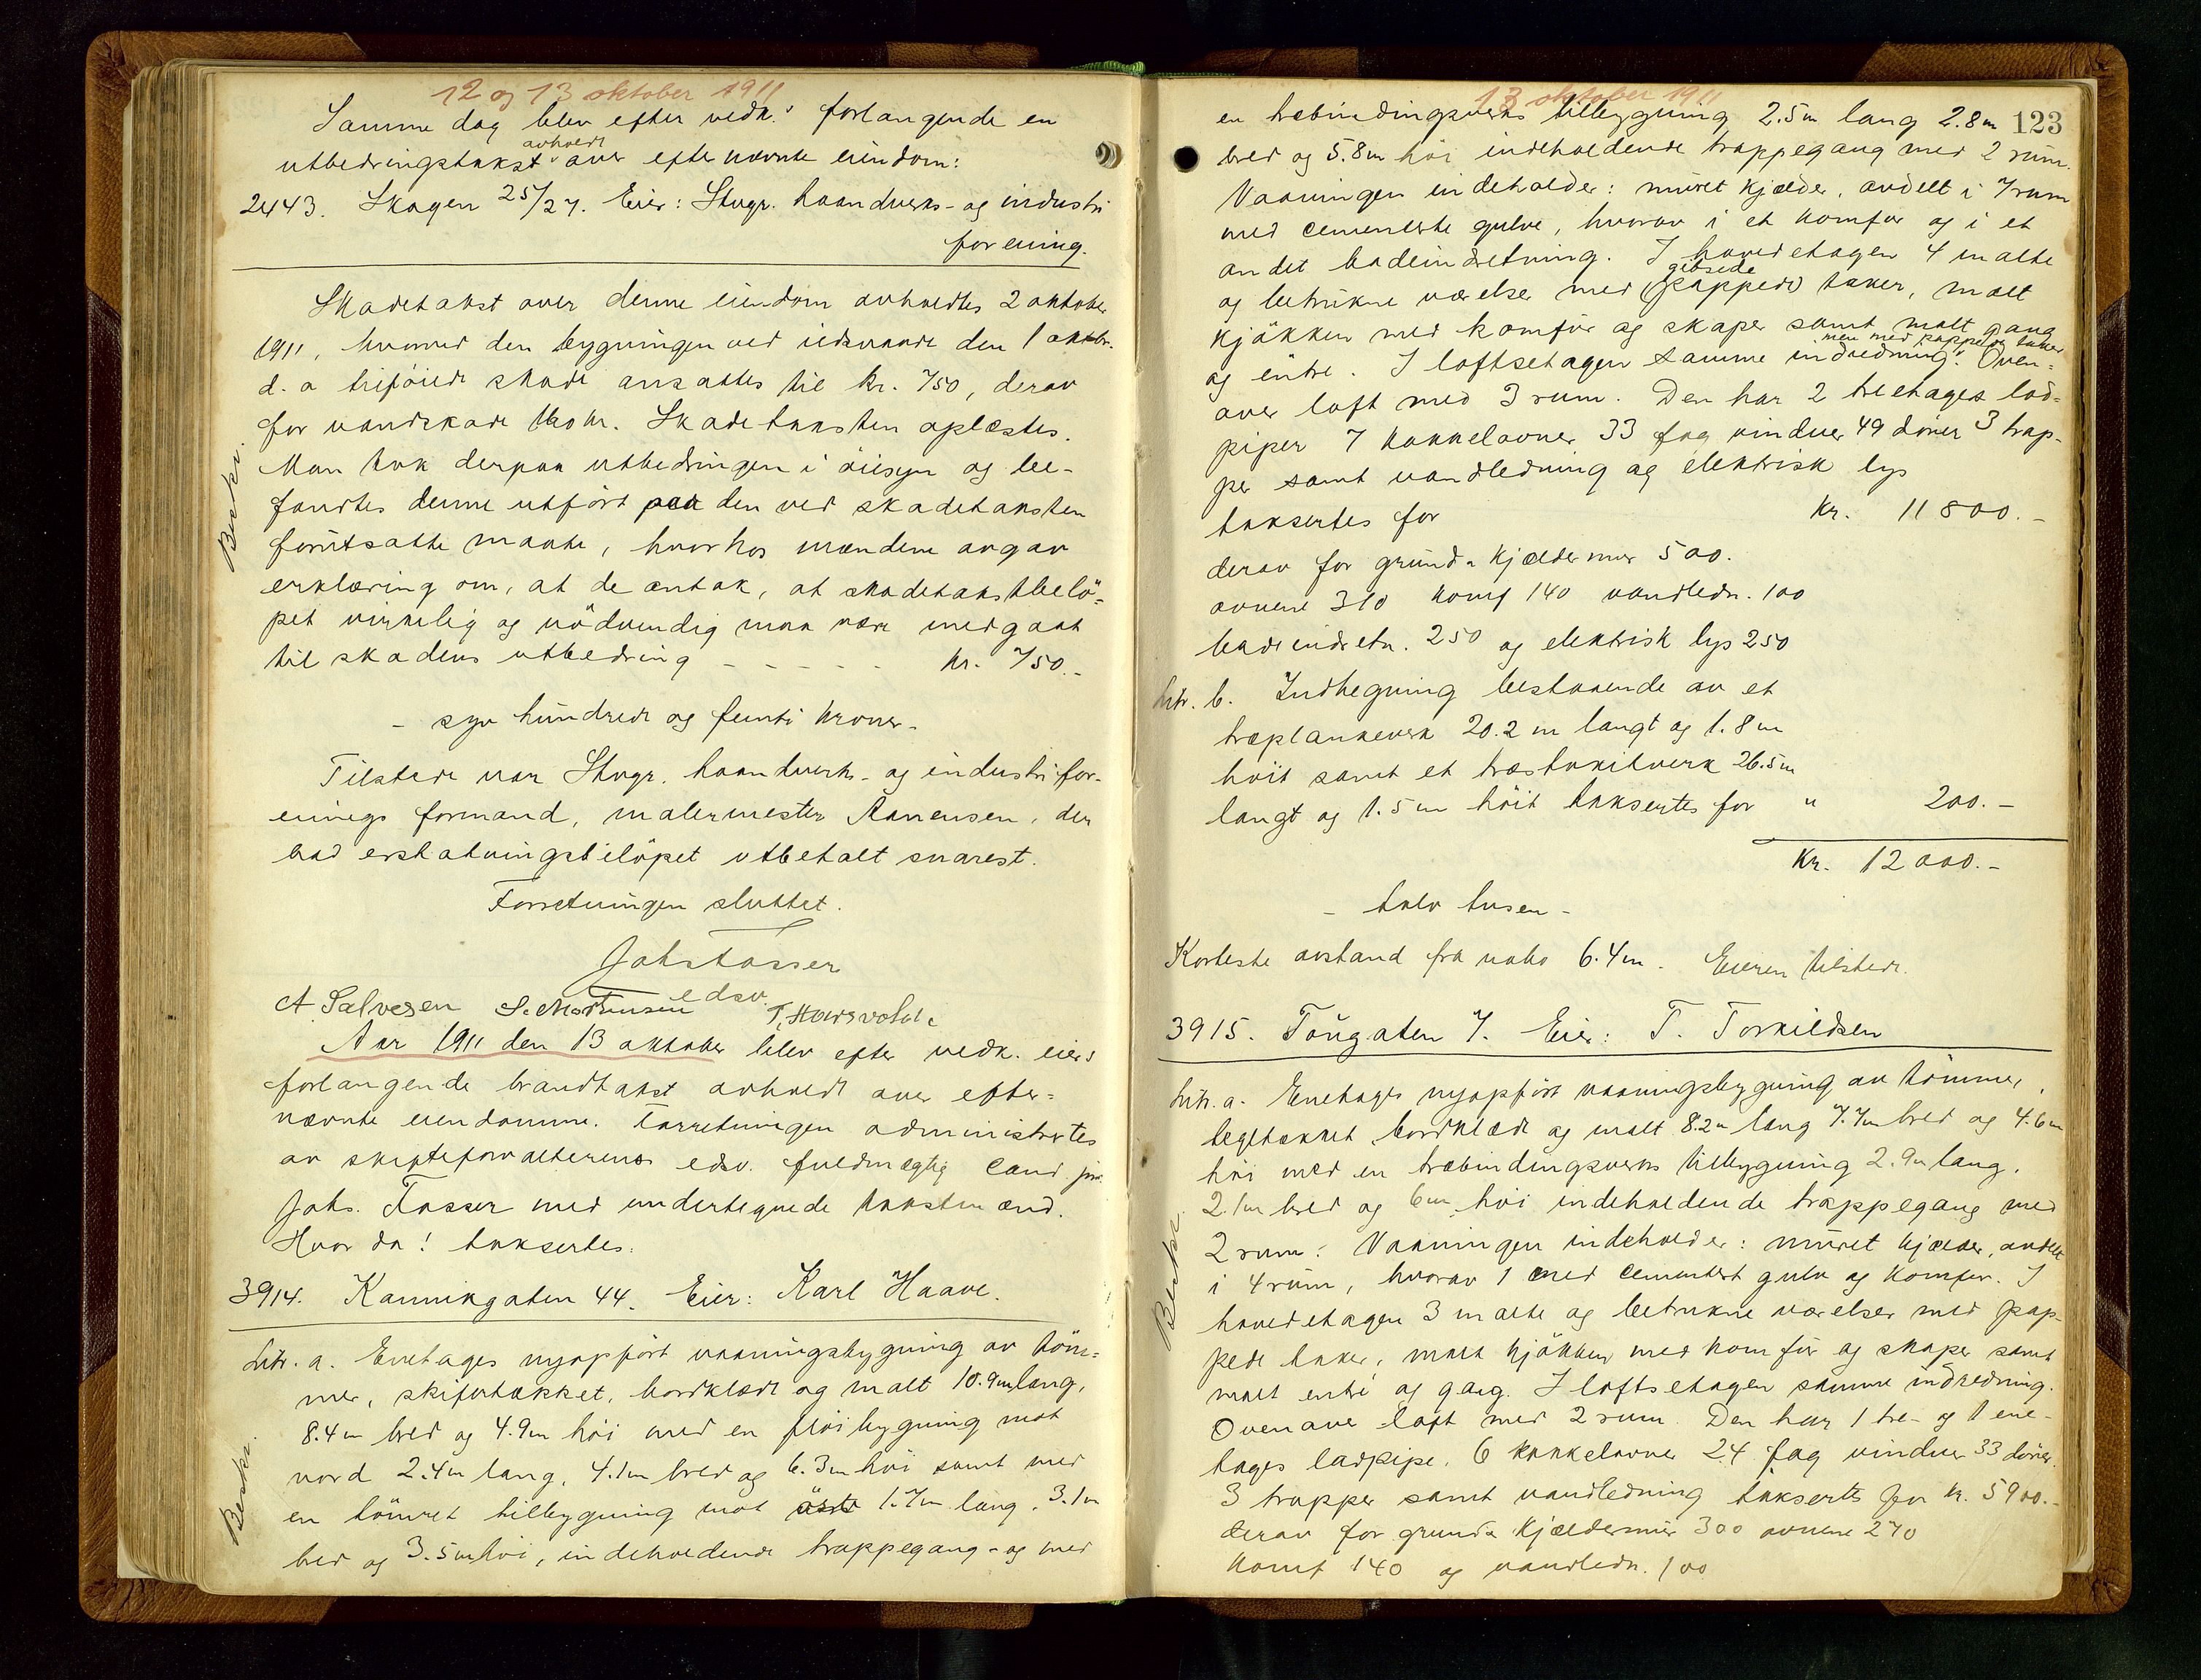 12 og 13 oktober 1911
Samme dag blev efter vedk.s forlangende en
utbedringstakst avholdt over efternævnte eiendom:
2443. Skagen 25/27. Eier: Stvgr. haandverks- og industri
forening.
Skadetakst over denne eiendom avholdtes 2 oktober
1911, hvorved den bygningen ved ildsvaade den 1 oktbr.
d. a tilføiede skade ansattes til kr. 750, derav
for vandskade 160 kr. Skadetaksten oplæstes.
Man tok derpaa utbedringen i øiesyn og be-
fandtes denne utført paa den ved skadetaksten
forutsatte maate, hvorhos mændene avgav
erklæring om, at de antok, at skadetakstbelö-
pet virkelig og nödvendig maa være medgaat
til skadens utbedring - - - - - kr. 750.-
- syv hundrede og femti kroner -
Tilstede var Stvgr. haandverks- og industrifor-
enings formand, malermester Aanensen, der
bad erstatningsbelöpet utbetalt snarest.
Forretningen sluttet.
Johs Fasser
edsv.
A. Salvesen S. Mortensen T. Housvold.
Beskr.
Aar 1911 den 13 oktober blev efter vedk. eiers
forlangende brandtakst avholdt over efter-
nævnte eiendomme. Forretningen administrertes
av skifteforvalterens edsv. fuldmægtig cand. jur.
Johs. Fasser med undertegnede takstmænd.
Hvor da! taksertes:
3914. Kannikgaten 44. Eier: Karl Haave.
Litr. a. Enetages nyopført vaaningsbygning av töm-
mer, skifertækket, bordklædt og malt 10.9m lang,
8.4m bred og 4.9m höi med en flöibygning mot
nord 2.4m lang, 4.1m bred og 6.3m höi samt med
en tömret tilbygning mot öst 1.7m lang. 3.1m
bred og 3.5m höi, indeholdende trappegang - og med
Beskr.
13 oktober 1911
123
en træbindingsverks tilbygning 2.5m lang 2.8m
bred og 5.8m höi indeholdende trappegang med 2 rum.
Vaaningen indeholder: muret kjælder, avdelt i 7 rum
med cementerte gulve, hvorav i et komfur og i et
andet badeindretning. I hovedetagen 4 malte
og betrukne værelser med gibsede (pappede) taker, malt
kjökken med komfür og skaper samt malt gang
og entre. I loftsetagen samme indredning men med pappede taker. Oven-
over loft med 3 rum. Den har 2 treetages lod-
piper 7 kakkelovner 33 fag vinduer 49 dörer 3 trap-
per samt vandledning og elektrisk lys
taksertes for kr. 11800.-
derav for grund & kjældermur 500.
ovnene 310 komf 140 vandledn. 100
badeindretn. 250 og elektrisk lys 250
Litr. b. Indhegning bestaaende av et
træplankeverk 20.2 m langt og 1.8m
höit samt et træstakitverk 26.5m
langt og 1.5m höit taksertes for " 200.-
Kr. 12000.-
- tolv tusen -
Korteste avstand fra nabo 6.4m. Eieren tilstede.
3915. Töugaten 7. Eier: T. Torkildsen
Litr. a. Enetages nyopført vaaningsbygning av tömmer,
tegltækket bordklædt og malt 8.2m lang 7.7m bred og 4.6m
höi med en træbindingsverks tilbygning 2.9m lang,
2.1m bred og 6m höi indeholdende trappegang med
2 rum. Vaaningen indeholder: muret kjælder, avdelt
i 4 rum, hvorav 1 med cementert gulv og komfur. I
hovedetagen 3 malte og betrukne værelser med pap-
pede taker, malt kjökken med komfür og skaper samt
malt entré og gang. I loftsetagen samme indredning.
Ovenover loft med 2 rum. Den har 1 tre- og 1 ene-
tages lodpipe. 6 kakkelovner 24 fag vinduer 33 dörer.
3 trapper samt vandledning taksertes for kr. 5900.-
derav for grund & kjældermur 300 ovnene 270
komf 140 og vandledn. 100
Beskr.